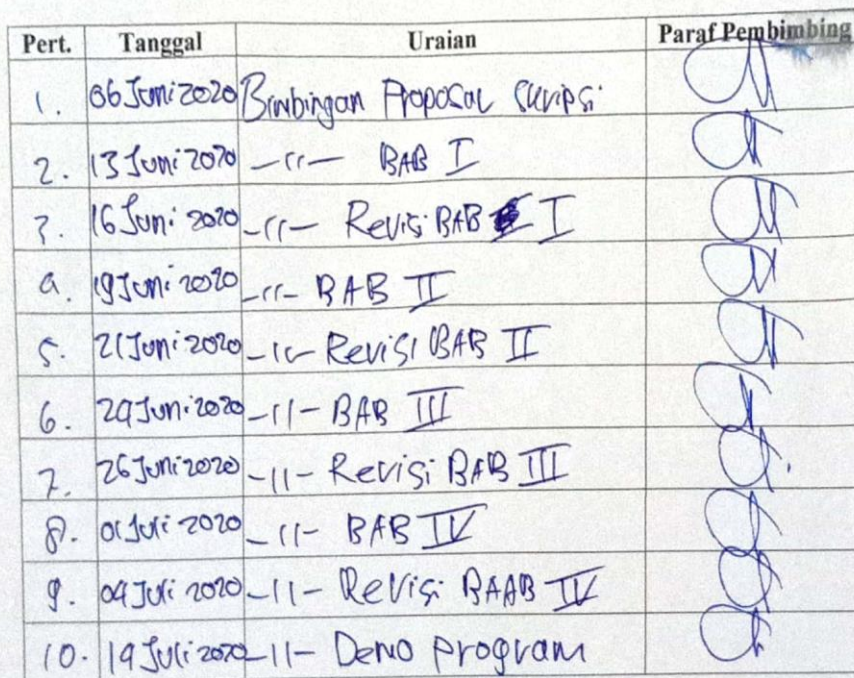 Pert. Tanggal Uraian Paraf Pembimbing
1. 06 Juni 2020 Bimbingan Proposal Skripsi
2. 13 Juni 2020 -11- BAB I
3. 16 Juni 2020 -11- Revisi BAB I
4. 19 Juni 2020 -11- BAB II
5. 21 Juni 2020 -11- Revisi BAB II
6. 24 Juni 2020 -11- BAB III
7. 26 Juni 2020 -11- Revisi BAB III
8. 01 Juli 2020 -11- BAB IV
9. 04 Juli 2020 -11- Revisi BAAB IV
10. 14 Juli 2020 -11- Demo program